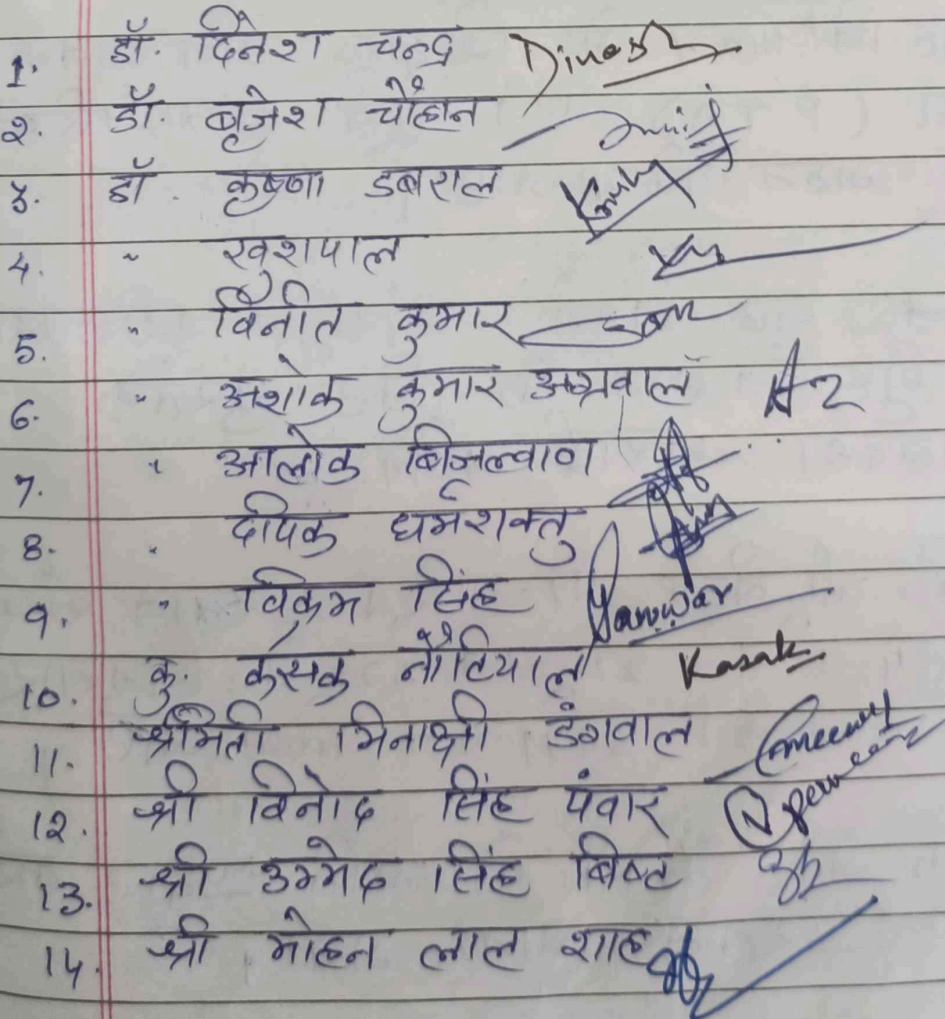 1. डॉ. दिनेश चन्द्र Dinesh
2. डॉ. बृजेश चौहान
3. डॉ कृष्णा डबराल Krish
4. " खुशपाल
5. " विनीत कुमार
6. " अशोक कुमार अग्रवाल
7. " आलोक बिजल्वाण
8. " दीपक धर्मशक्तु
9. " विक्रम सिंह Panwar
10. कु. कसक नौटियाल Kasak
11. श्रीमती मिनाक्षी डंगवाल
12. श्री विनोद सिंह पंवार
13. श्री उम्मेद सिंह बिष्ट
14. श्री मोहन लाल शाह